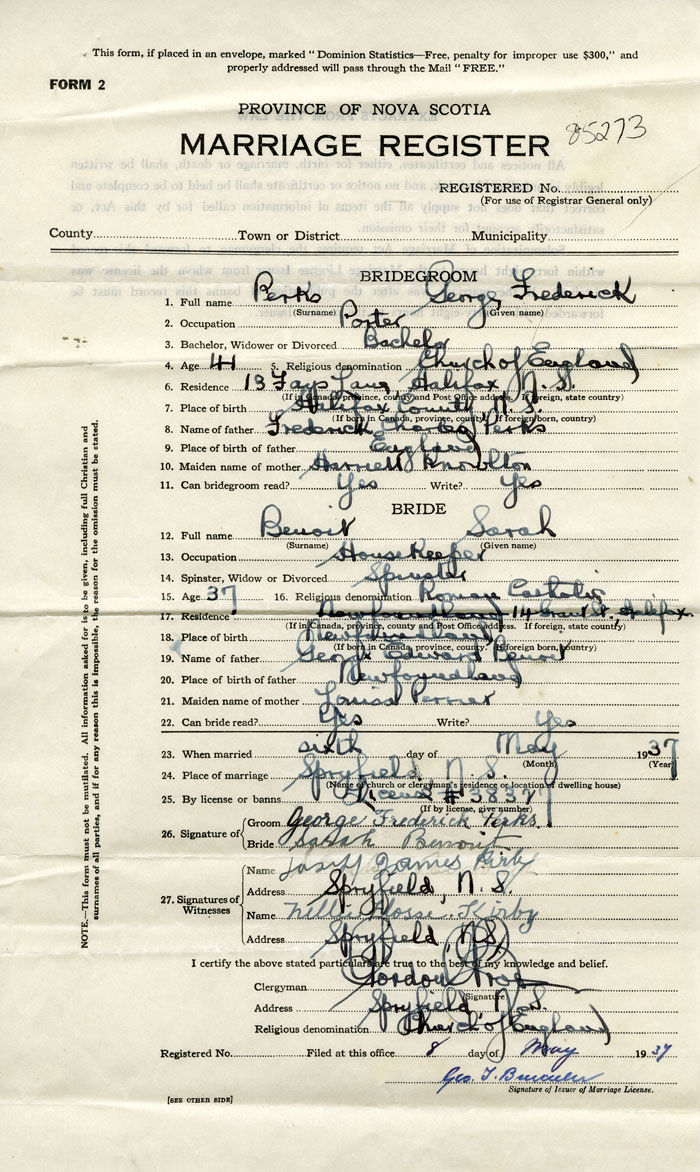 This form, if placed in an envelope, marked "Dominion Statistics—Free, penalty for improper use $300," and
properly addressed will pass through the Mail "FREE."
FORM 2
PROVINCE OF NOVA SCOTIA
MARRIAGE REGISTER 85273
REGISTERED No.
(For use of Registrar General only)
County Town or District Municipality
BRIDEGROOM
1. Full name Perks George Frederick
(Surname) (Given name)
2. Occupation Porter
3. Bachelor, Widower or Divorced Bachelor
4. Age 41 5. Religious denomination Church of England
6. Residence 13 Lane, Halifax N. S.
(If in Canada, province, county and Post Office address. If foreign, state country)
7. Place of birth Halifax County N. S.
(If born in Canada, province, county. If foreign born, country)
8. Name of father Frederick Charles Perks
9. Place of birth of father England
10. Maiden name of mother Harriett Knowlton
11. Can bridegroom read? Yes Write? Yes
BRIDE
12. Full name Benoit Sarah
(Surname) (Given name)
13. Occupation HouseKeeper
14. Spinster, Widow or Divorced Spinster
15. Age 37 16. Religious denomination Roman Catholic
17. Residence Newfoundland 14 Grant St. Halifax
(If in Canada, province, county and Post Office address. If foreign, state country)
18. Place of birth Newfoundland
(If born in Canada, province, county. If foreign born, country)
19. Name of father George Edward Benoit
20. Place of birth of father Newfoundland
21. Maiden name of mother Louisa
22. Can bride read? Yes Write? Yes
23. When married sixth day of May 1937
(Month) (Year)
24. Place of marriage Spryfield, N. S.
(Name of church or clergyman's residence or location of dwelling house)
25. By license or banns License # 38371
(If by license, give number)
26. Signature of Groom George Frederick Perks
Bride Sarah Benoit
27. Signatures of Witnesses
Name Joseph James Kirby
Address Spryfield, N. S.
Name Kirby
Address Spryfield, N.S.
I certify the above stated particulars are true to the best of my knowledge and belief.
Clergyman Gordon
(Signature)
Address Spryfield N.S.
Religious denomination Church of England
Registered No. Filed at this office 8 day of May 1937
Geo. T.
Signature of Issuer of Marriage License.
[SEE OTHER SIDE]
NOTE.—This form must not be mutilated. All information asked for is to be given, including full Christian and
surnames of all parties, and if for any reason this is impossible, the reason for the omission must be stated.